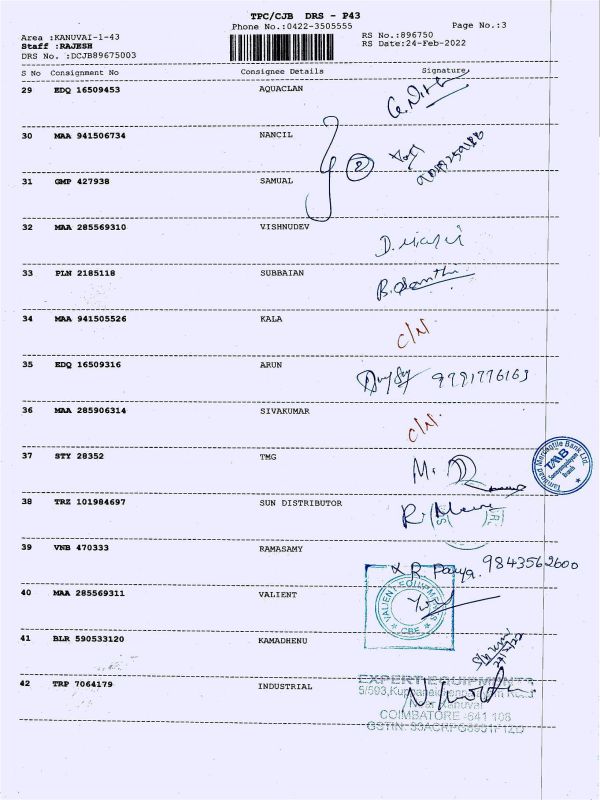 TPC/CJB DRS - P43
Phone No.:0422-3505555
Page No.:3
Area :KANUVAI-1-43
RS No.:896750
Staff :RAJESH
RS Date:24-Feb-2022
DRS No. :DCJB89675003
S No Consignment No Consignee Details Signature
29 EDQ 16509453 AQUACLAN
30 MAA 941506734 NANCIL
2
31 GMP 427938 SAMUAL
32 MAA 285569310 VISHNUDEV
33 PLN 2185118 SUBBAIAN
34 MAA 941505526 KALA
C/N.
35 EDQ 16509316 ARUN
9791776163
36 MAA 285906314 SIVAKUMAR
C/N.
37 STY 28352 TMG
Tamilnad Mercantile Bank Ltd.
TMB
Branch
38 TRZ 101984697 SUN DISTRIBUTOR
39 VNB 470333 RAMASAMY
9843562600
40 MAA 285569311 VALIENT
VALIENT EQUIPMENTS
CBE
41 BLR 590533120 KAMADHENU
42 TRP 7064179 INDUSTRIAL
EXPERT EQUIPMENTS
5/593,
Near Kanuvai
COIMBATORE -641 108